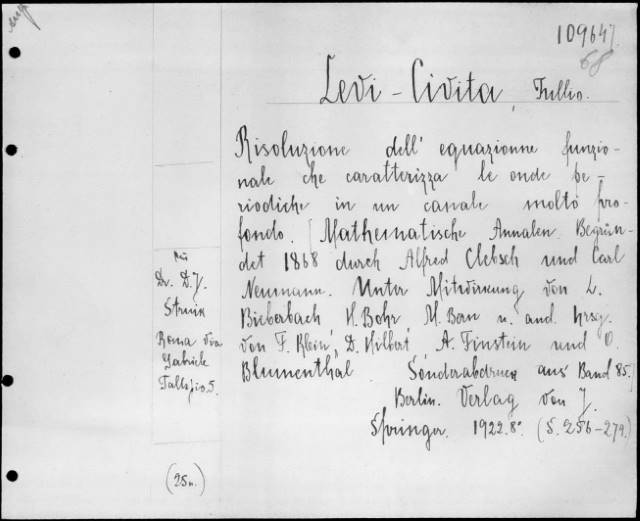 109647
68
Levi-Civita, Tullio.
Risoluzione dell' equazionne funzio-
nale che caratterizza le onde pe-
riodiche in un canale molto pro-
fondo. [Mathematische Annalen. Begrün-
det 1868 durch Alfred Clebsch und Carl
Neumann. Unter Mitwirkung von L.
Bieberbach, H. Bohr, M. Born u. and. hrsg.
von F. Klein, D. Hilbert, A. Einstein und O.
Blumenthal. Sonderabdruck aus Band 85.]
Berlin. Verlag von J.
Springer. 1922. 8°. (S. 256-279.)
Dr. D. J.
Struik
Roma via
Gabriele
5.
(25u.)